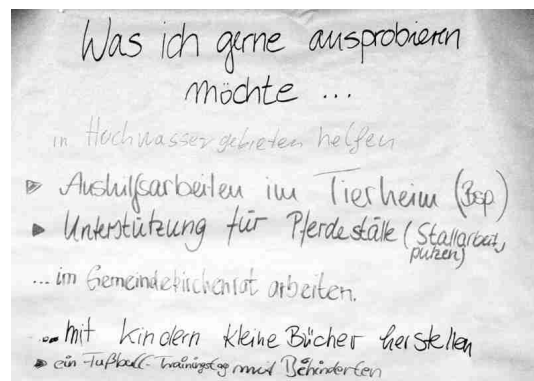 Was ich gerne ausprobieren
möchte ...
in Hochwassergebieten helfen
Aushilfsarbeiten im Tierheim (Bsp.)
Unterstützung für Pferdeställe (Stallarbeit,
putzen)
...im Gemeindekirchenrat arbeiten.
...mit Kindern kleine Bücher herstellen
ein Fußball-Trainingstag mit Behinderten